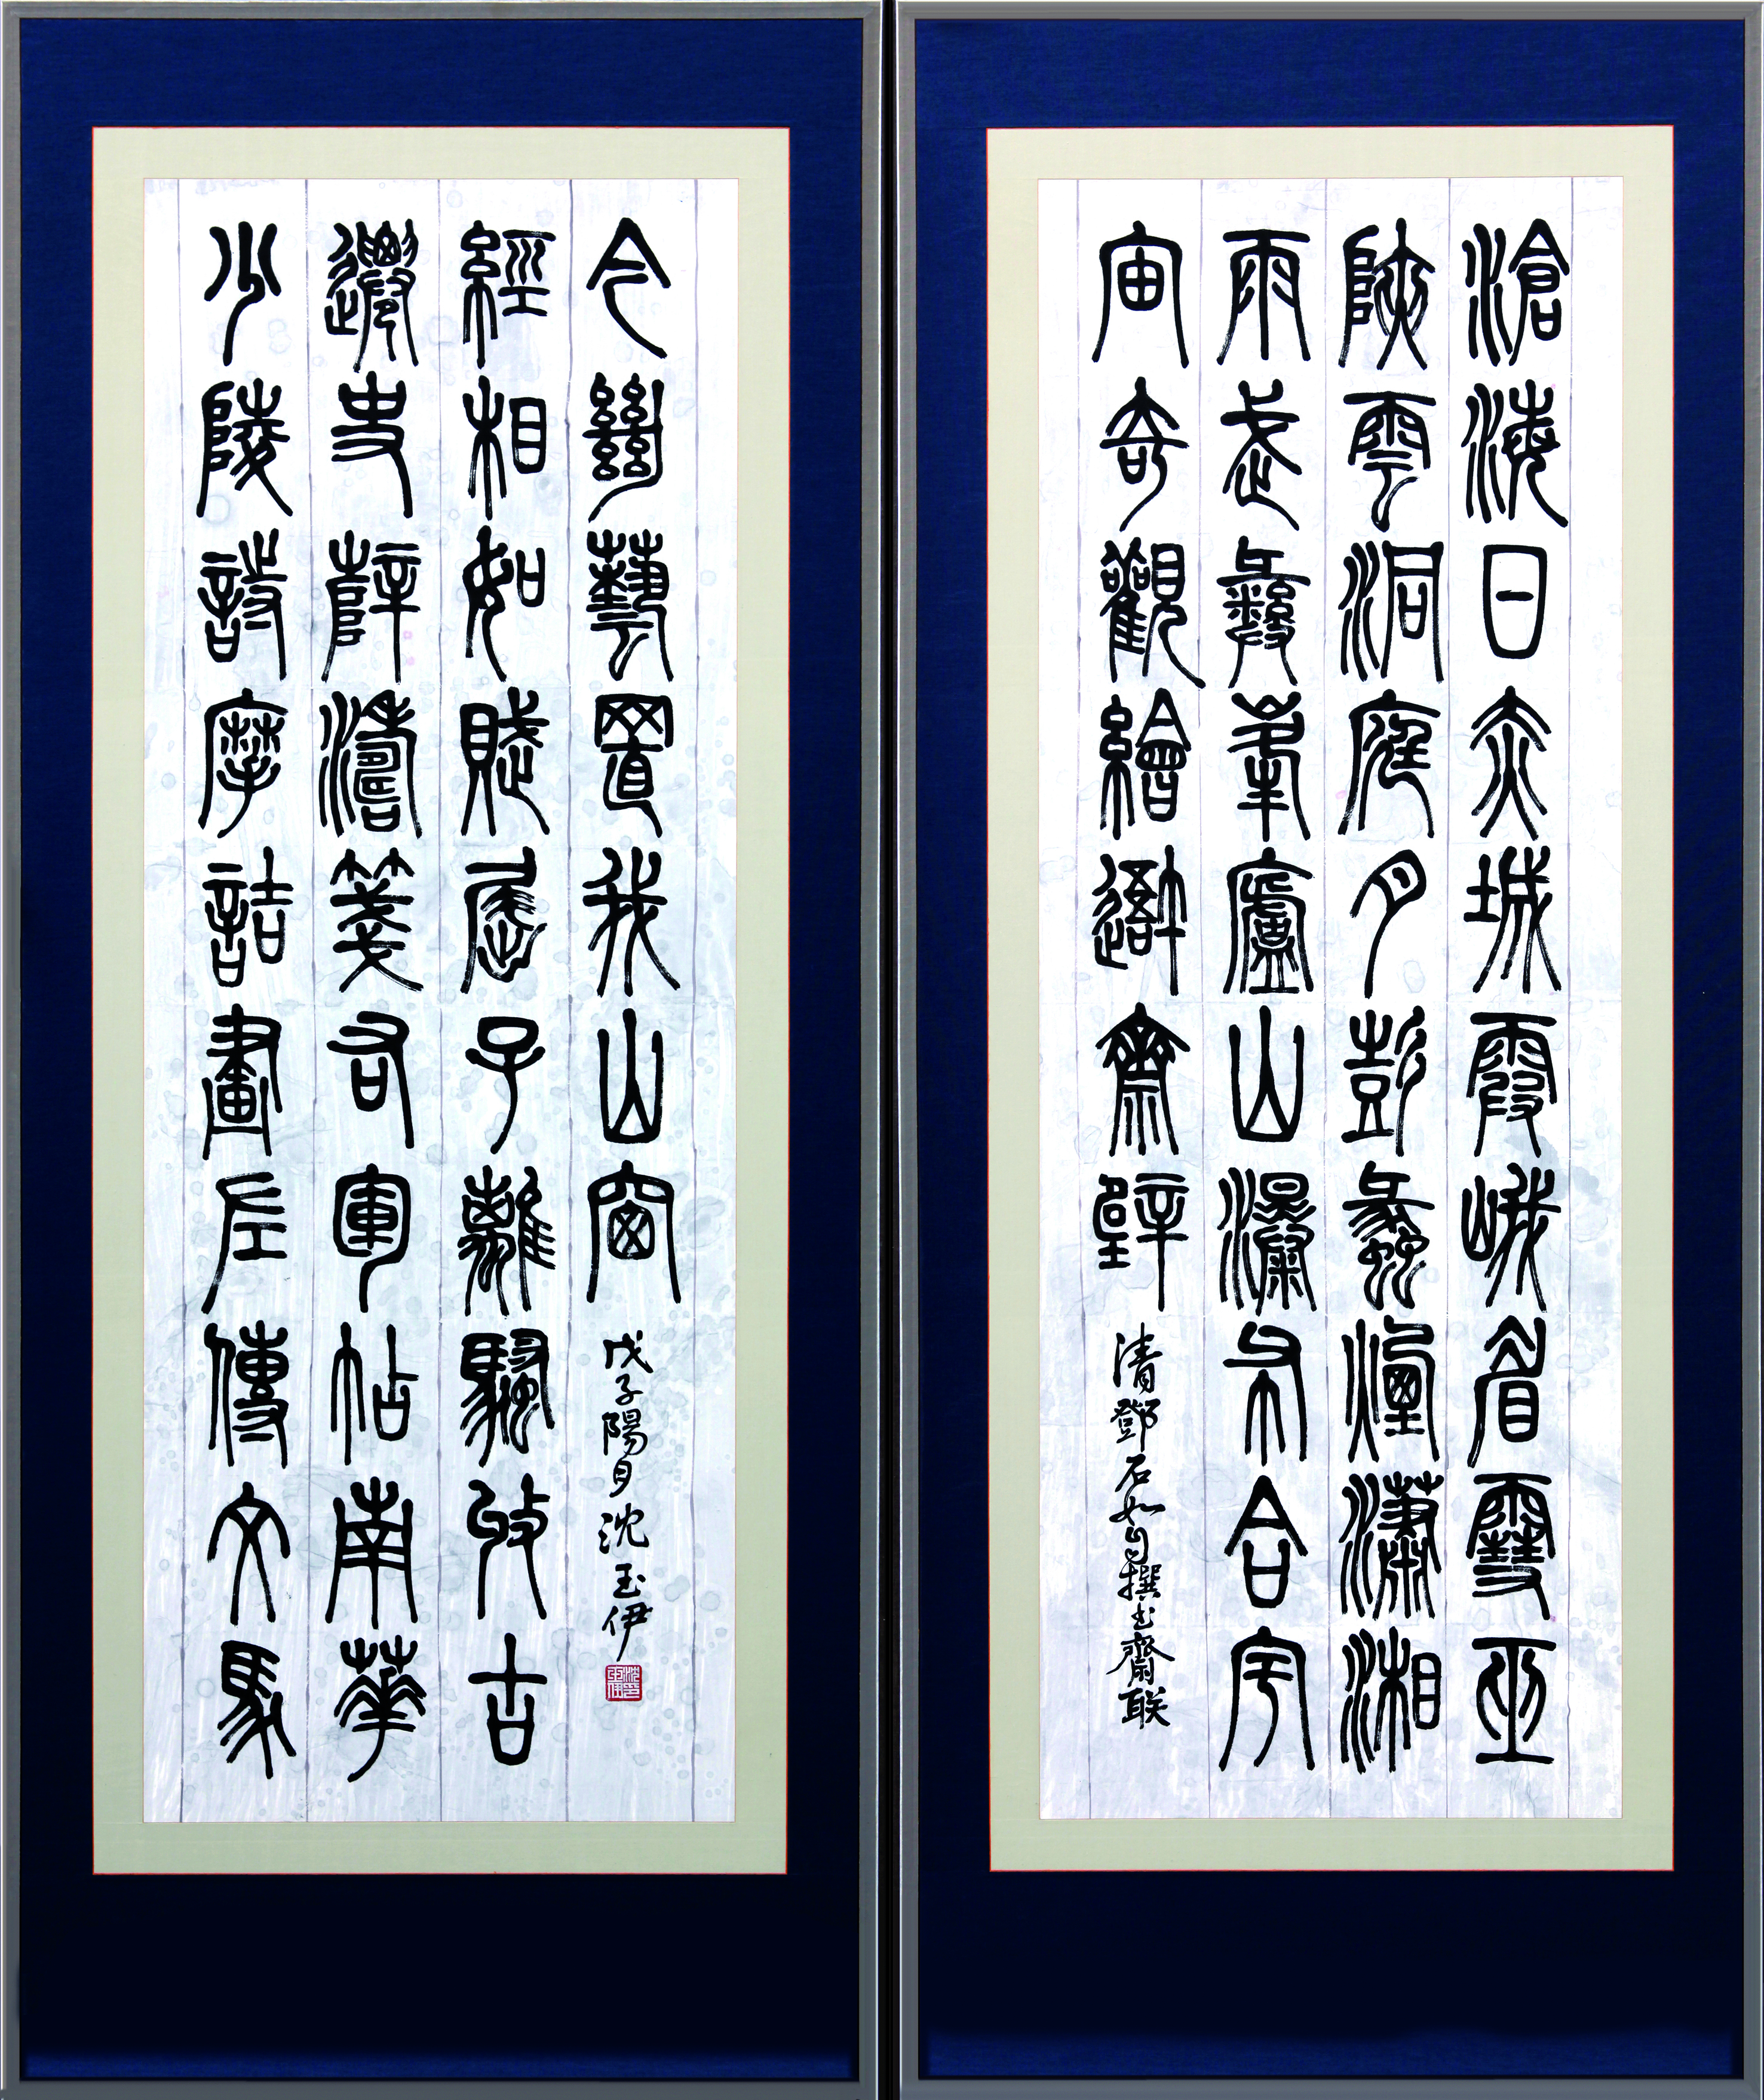 滄海日赤城霞峨眉雪巫
陜雲洞庭月彭蠡煙瀟湘
雨武彝峯廬山瀑布合宇
宙奇觀繪吾齋壁
清鄧石如自撰书齋联
少陵詩摩詰畫左傳文馬
遷史薛濤箋右軍帖南華
經相如賦屈子離騷收古
今絕藝置我山窗
戊子陽月沈玉伊